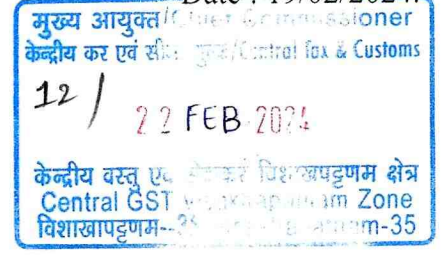 Date : 19/02/2024.
मुख्य आयुक्त/Chief Commissioner
केन्द्रीय कर एवं सीमा शुल्क/Central Tax & Customs
12/
22 FEB 2024
केन्द्रीय वस्तु एवं विशाखपट्टणम क्षेत्र
Central GST Visakhapatnam Zone
विशाखापट्टणम--35